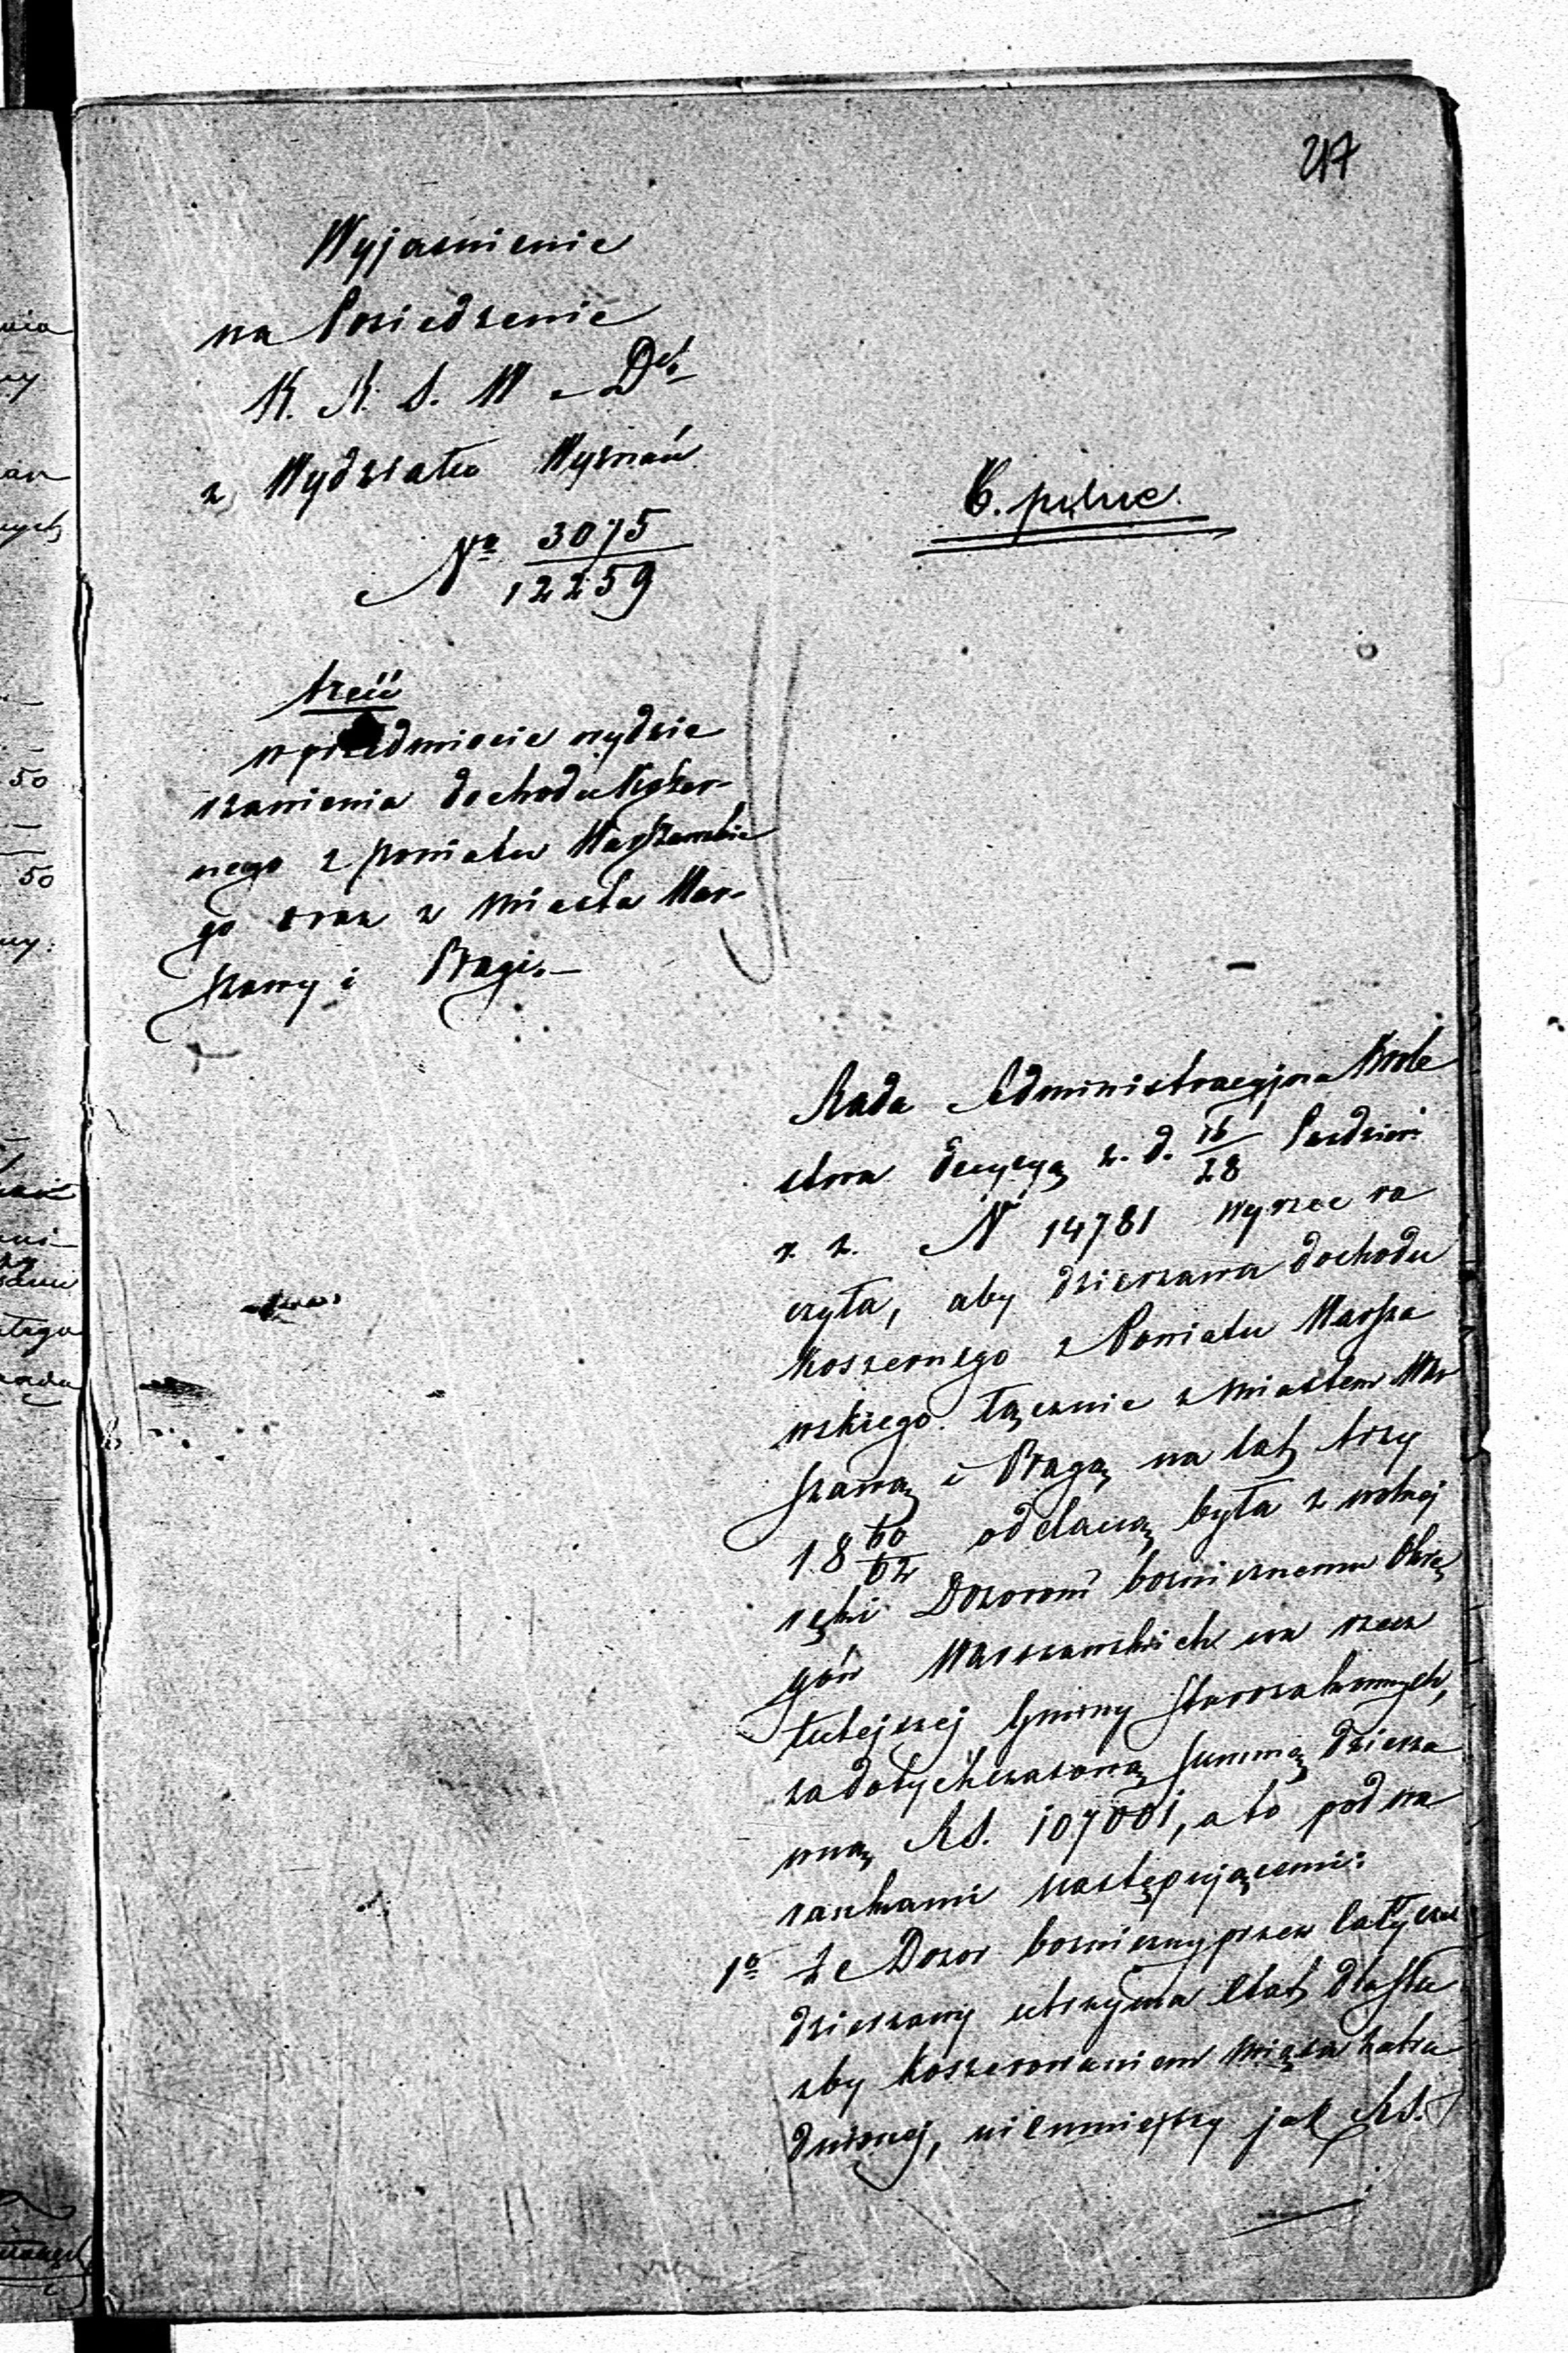 217
Wyjasnienie
na Posiedzenie
K. R. S. W. D.
z Wydziału Wyznań
Nº 3075/12259
B. pilne.
treść
w przedmiocie wydzie
rzawienia dochodu Koszer-
nego z powiatu Warszawskie
go oraz z Miasta War-
szawy i Pragi.–
Rada Administracyjna Króle
stwa decyzyą z. d. 16/28 Pazdzier.
r. z. N 14781 wyrzec ra
czyła, aby dzierzawa dochodu
koszernego z Powiatu Warsza
wskiego łącznie z Miastem War
szawą i Pragą na lat trzy
18 60/62 oddaną była z wolnej
ręki Dozorowi bożniczemu Okrę
gów Warszawskich na rzecz
tutejszej Gminy Starozakonnych,
za dotychczasową summę dzierza
wną RS. 107001, a to pod wa
runkami następującemi:
1º że Dozor bożniczny przez cały czas
dzierzawy utrzyma etat dla słu
zby koszerowaniem mięsa zatru
dnionej, nie mniejszy jak RS.